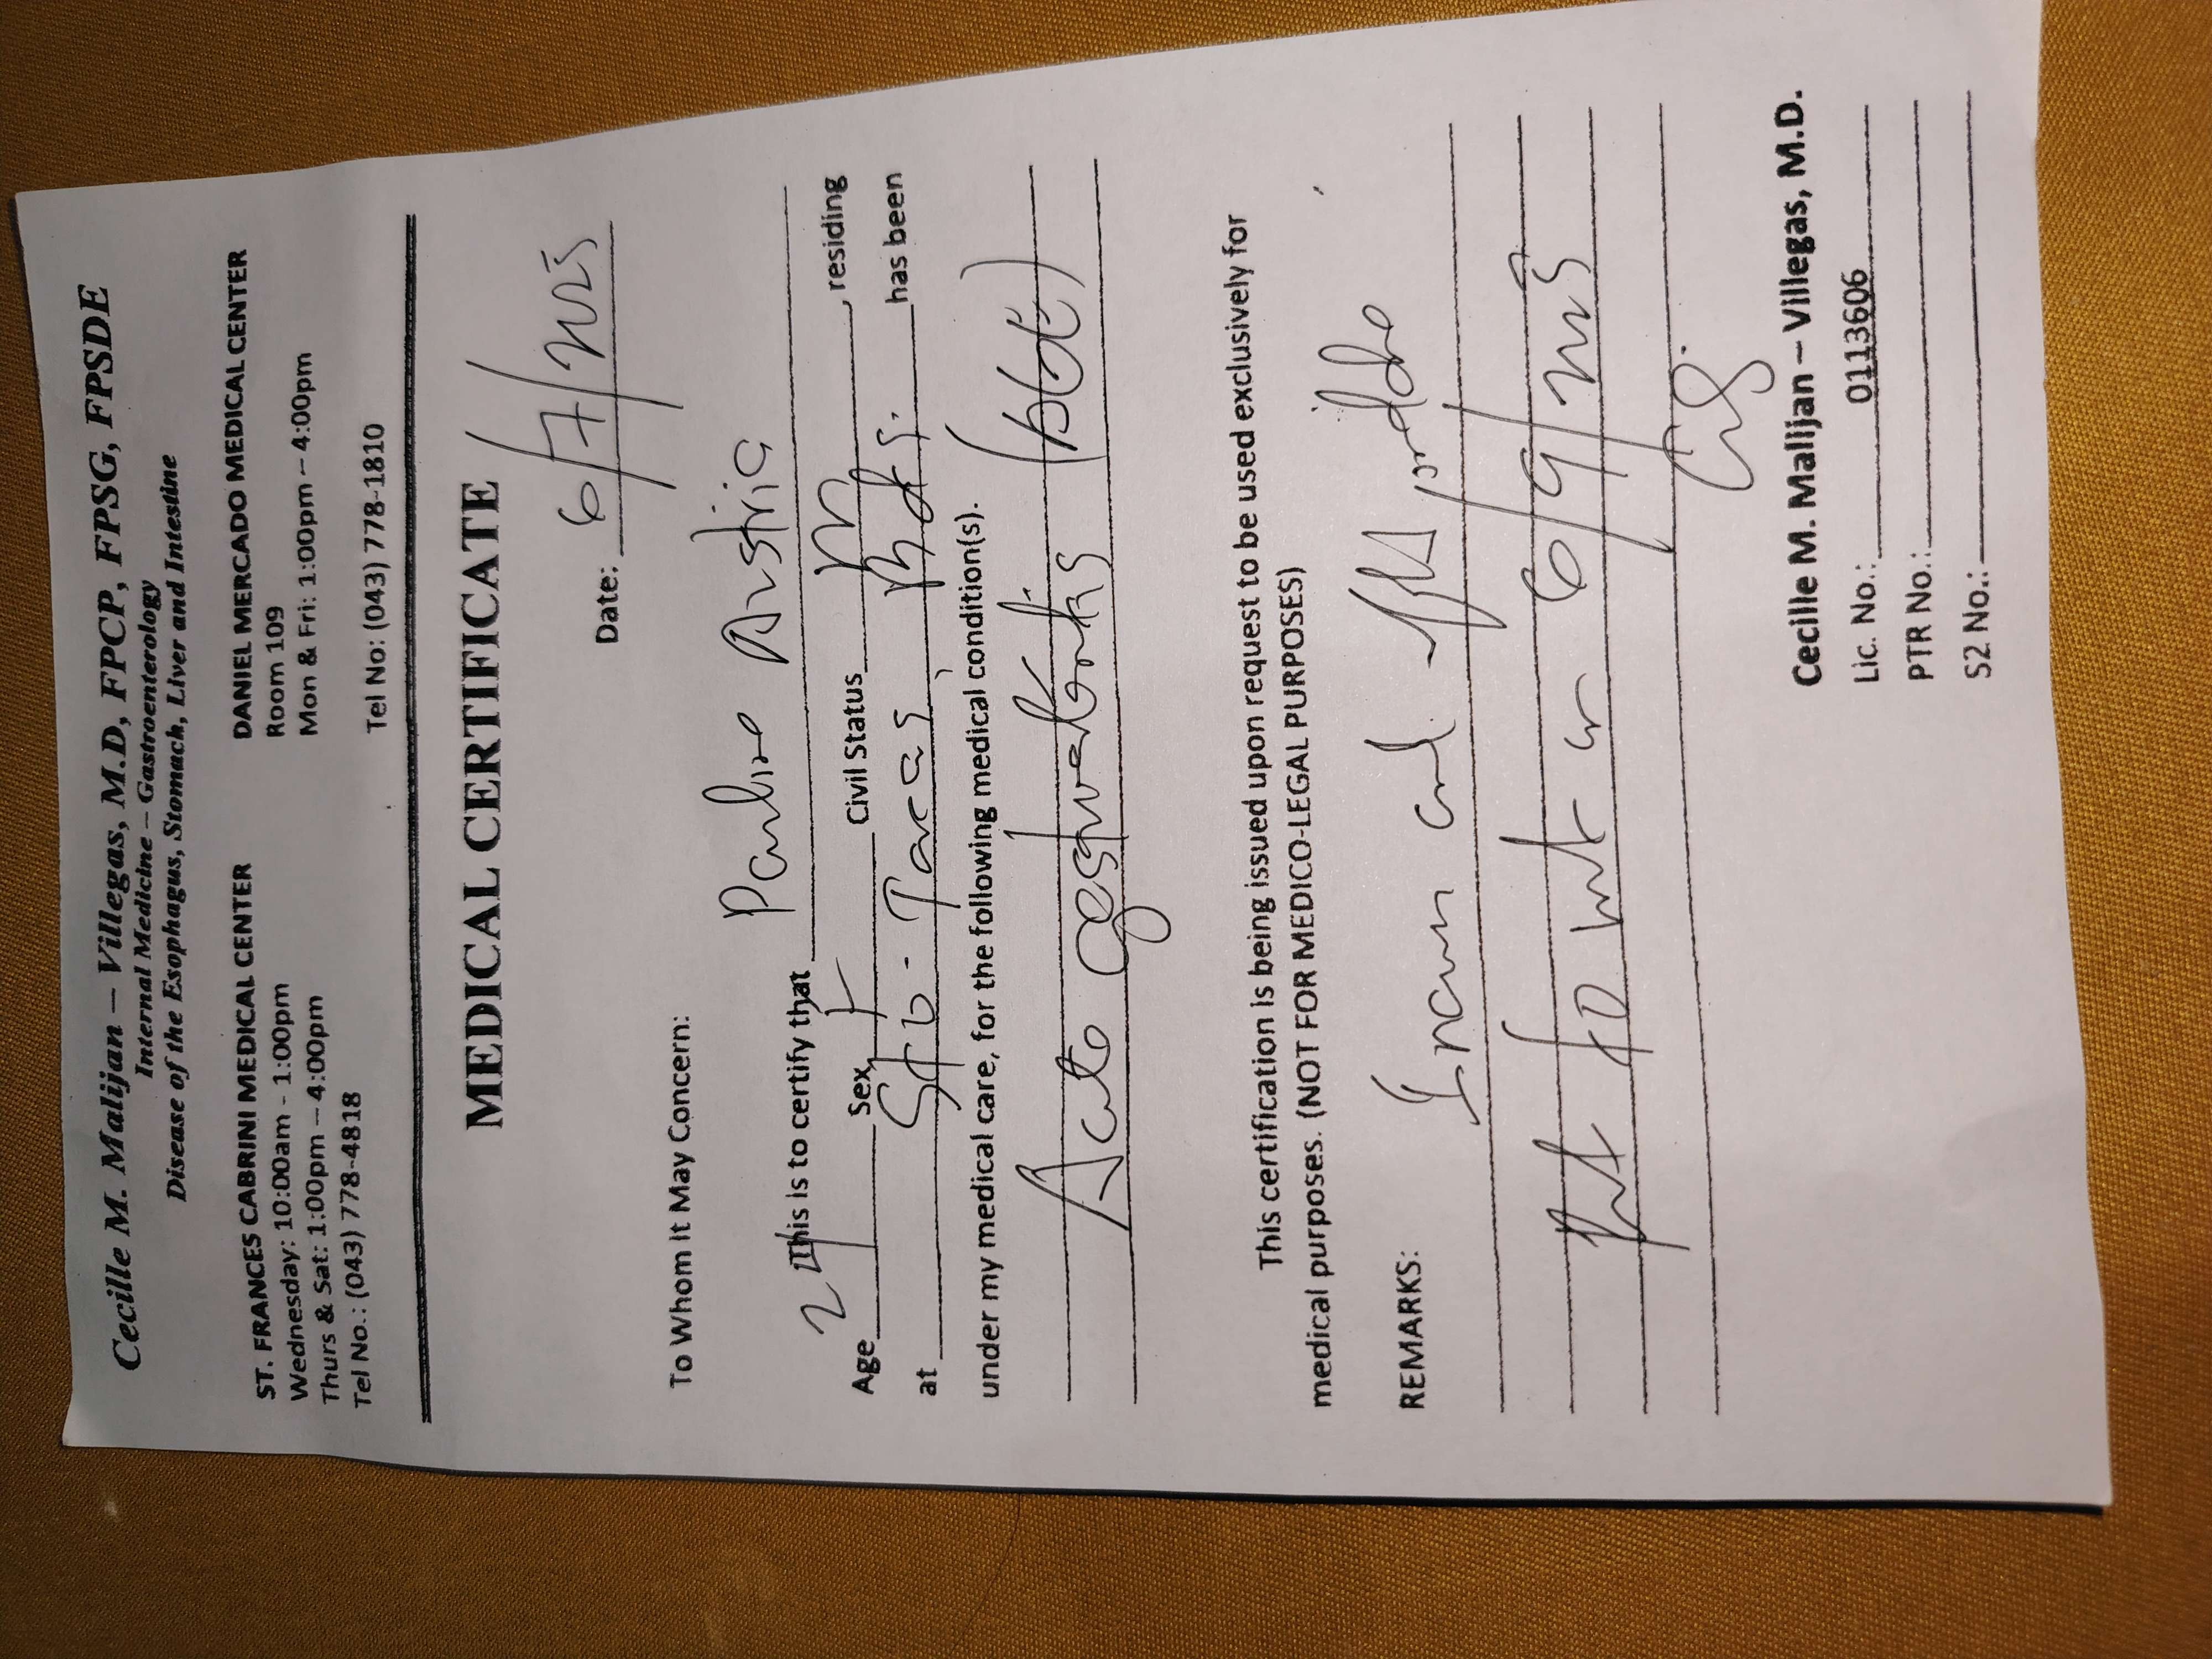 Cecille M. Malijan – Villegas, M.D, FPCP, FPSG, FPSDE
Internal Medicine – Gastroenterology
Disease of the Esophagus, Stomach, Liver and Intestine
ST. FRANCES CABRINI MEDICAL CENTER
Wednesday: 10:00am - 1:00pm
Thurs & Sat: 1:00pm – 4:00pm
Tel No.: (043) 778-4818
DANIEL MERCADO MEDICAL CENTER
Room 109
Mon & Fri: 1:00pm – 4:00pm
Tel No: (043) 778-1810
MEDICAL CERTIFICATE
Date: 6/7/2025
To Whom It May Concern:
This is to certify that Pauline Austria
Age Sex F Civil Status M, residing
at Sto. Tomas, has been
under my medical care, for the following medical condition(s).
Acute gastroenteritis
This certification is being issued upon request to be used exclusively for
medical purposes. (NOT FOR MEDICO-LEGAL PURPOSES)
REMARKS:
6/9/2025
Cecille M. Malijan – Villegas, M.D.
Lic. No.: 0113606
PTR No.:
S2 No.: